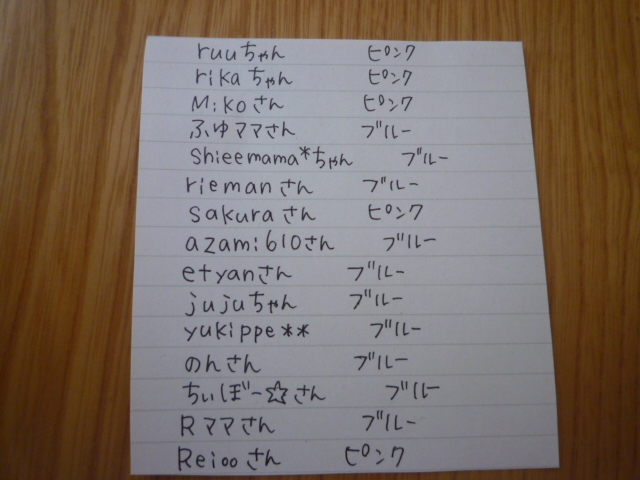 ruuちゃん ピンク
rikaちゃん ピンク
Mikoさん ピンク
ふゆママさん ブルー
Shieemama*ちゃん ブルー
riemanさん ブルー
Sakuraさん ピンク
azami610さん ブルー
etyanさん ブルー
jujuちゃん ブルー
yukippe** ブルー
のんさん ブルー
ちぃぼー☆さん ブルー
Rママさん ブルー
Reiooさん ピンク